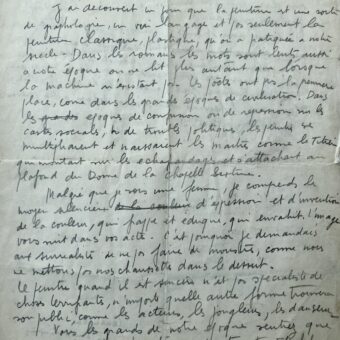 J'ai découvert un jour que la peinture est une sorte
de pictologie, un vrai langage et pas seulement la
peinture classique, plastique, qu'on a pratiquée
siècle. Dans les romans les mots sont lents aussi
à notre époque on ne lit plus autant que lorsque
la machine n'existait pas. Les poètes ont pas la première
place, comme dans les grandes époques de civilisation. Dans
les grandes époques de ou de repression sur les
castes sociales, de troubles politiques, les peintres se
multiplièrent et naissaient les maîtres comme le Titien
qui montait sur les échafaudages et s'attachait au
plafond du Dome de la chapelle Sixtine.
Malgré que je sois une femme, je comprends le
moyen silencieux d'expression et d'invention
de la couleur, qui frappe et eduque, qui envahit l'image
vous suit dans vos actes. C'est pourquoi je demandais
aux surréalistes de ne pas faire de monstres, comme nous
ne mettons pas nos chaussettes dans le dessert.
Le peintre quand il est sincère n'est pas spécialiste de
choses terrifiantes, n'importe quelle autre forme trouverait
son public, comme les acteurs, les jongleurs, les danseurs.
Vous les grands de notre époque sentez que